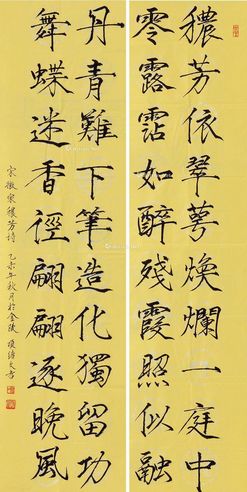 穠芳依翠萼煥爛一庭中
零露霑如醉殘霞照似融
丹青難下筆造化獨留功
舞蝶迷香徑翩翩逐晚風
宋徽宗穠芳詩 乙未年秋月於金陵